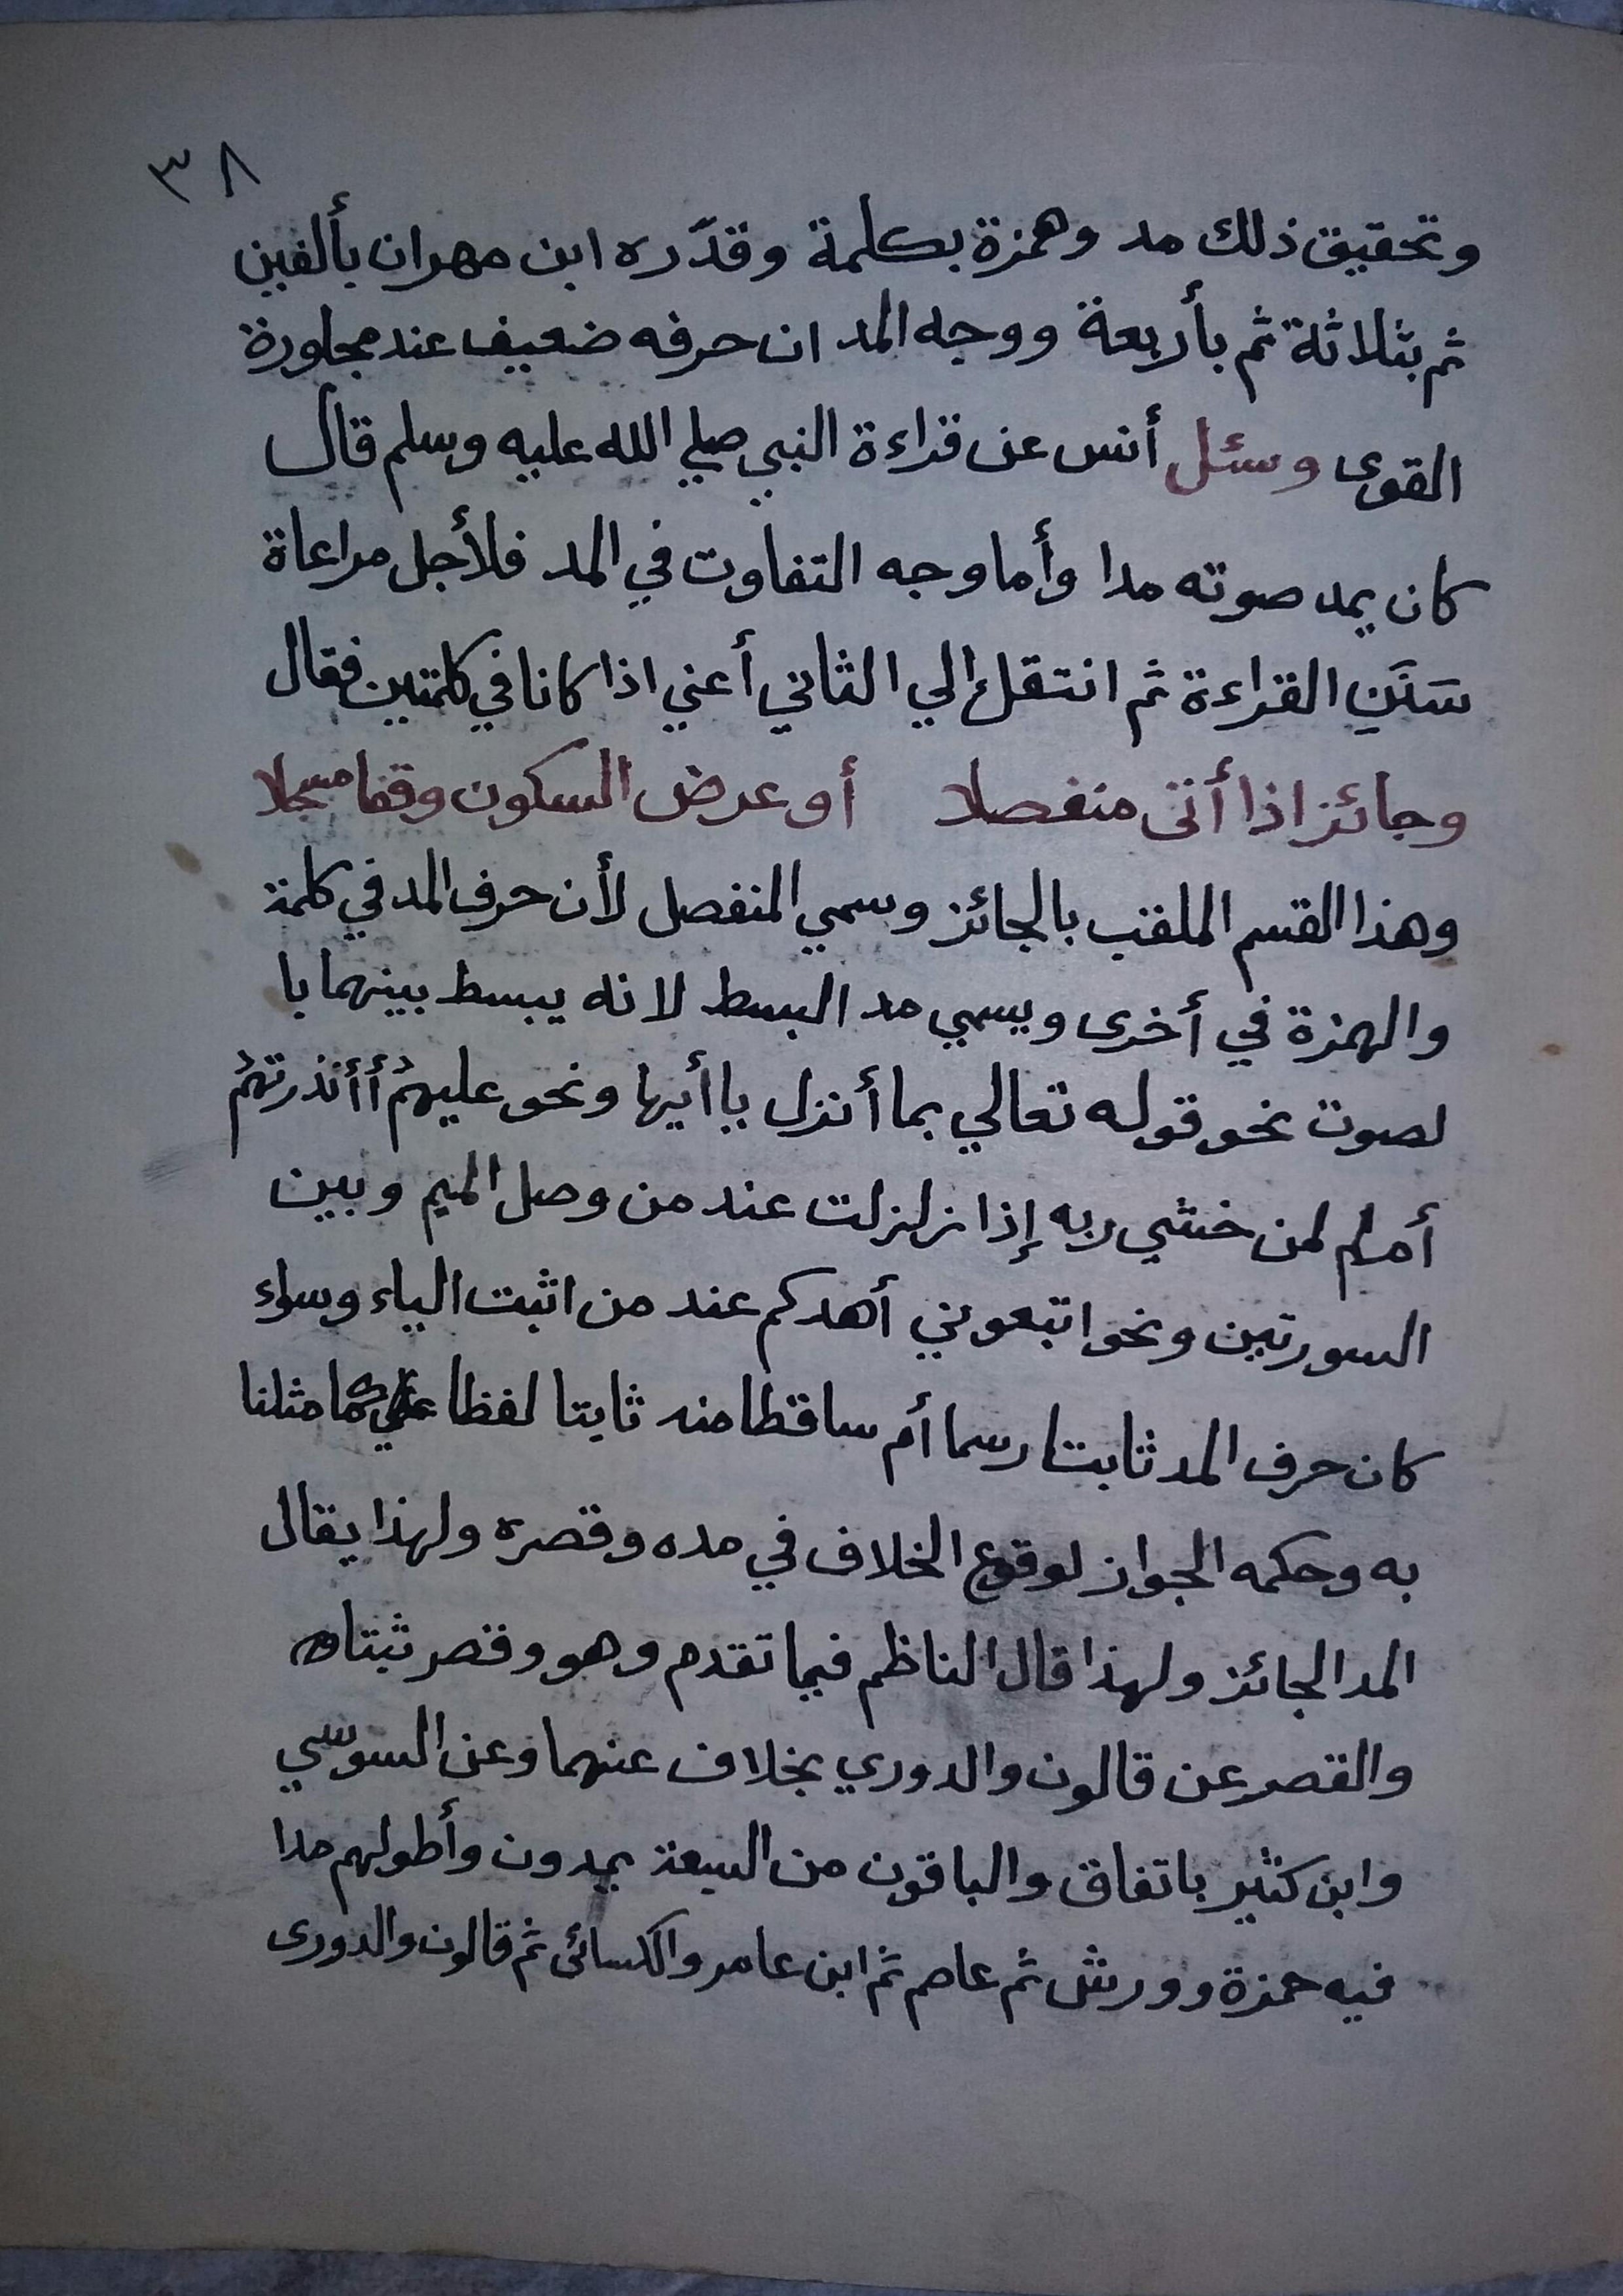 ٣٨
وتحقيق ذلك مد وهمزة بكلمة وقدّره ابن مهران بألفين
ثم بثلاثة ثم بأربعة ووجه المد ان حرفه ضعيف عند مجاورة
القوى وسئل أنس عن قراءة النبي صلي الله عليه وسلم قال
كان يمد صوته مدا وأما وجه التفاوت في المد فلأجل مراعاة
سَنَنِ القراءة ثم انتقل الي الثاني أعني اذا كانا في كلمتين فقال
وجائز اذا أتى منفصلا أو عرض السكون وقفا مسجلا
وهذا القسم الملقب بالجائز وسمي المنفصل لأن حرف المد في كلمة
والهمزة في أخرى ويسمي مد البسط لانه يبسط بينهما با
لصوت نحو قوله تعالي بما أنزل ياأيها ونحو عليهمُ أأنذرتهمُ
أم لم لمن خشي ربه إذا زلزلت عند من وصل الميم وبين
السورتين ونحو اتبعوني أهدكم عند من اثبت الياء وسواء
كان حرف المد ثابتا رسما أم ساقطا منه ثابتا لفظا كما مثلنا
به وحكمه الجواز لوقوع الخلاف في مده وقصره ولهذا يقال
المد الجائز ولهذا قال الناظم فيما تقدم وهو وقصر ثبتا
والقصر عن قالون والدوري بخلاف عنهما وعن السوسي
وابن كثير باتفاق والباقون من السبعة يمدون وأطولهم مدا
فيه حمزة وورش ثم عاصم ثم ابن عامر والكسائى ثم قالون والدورى